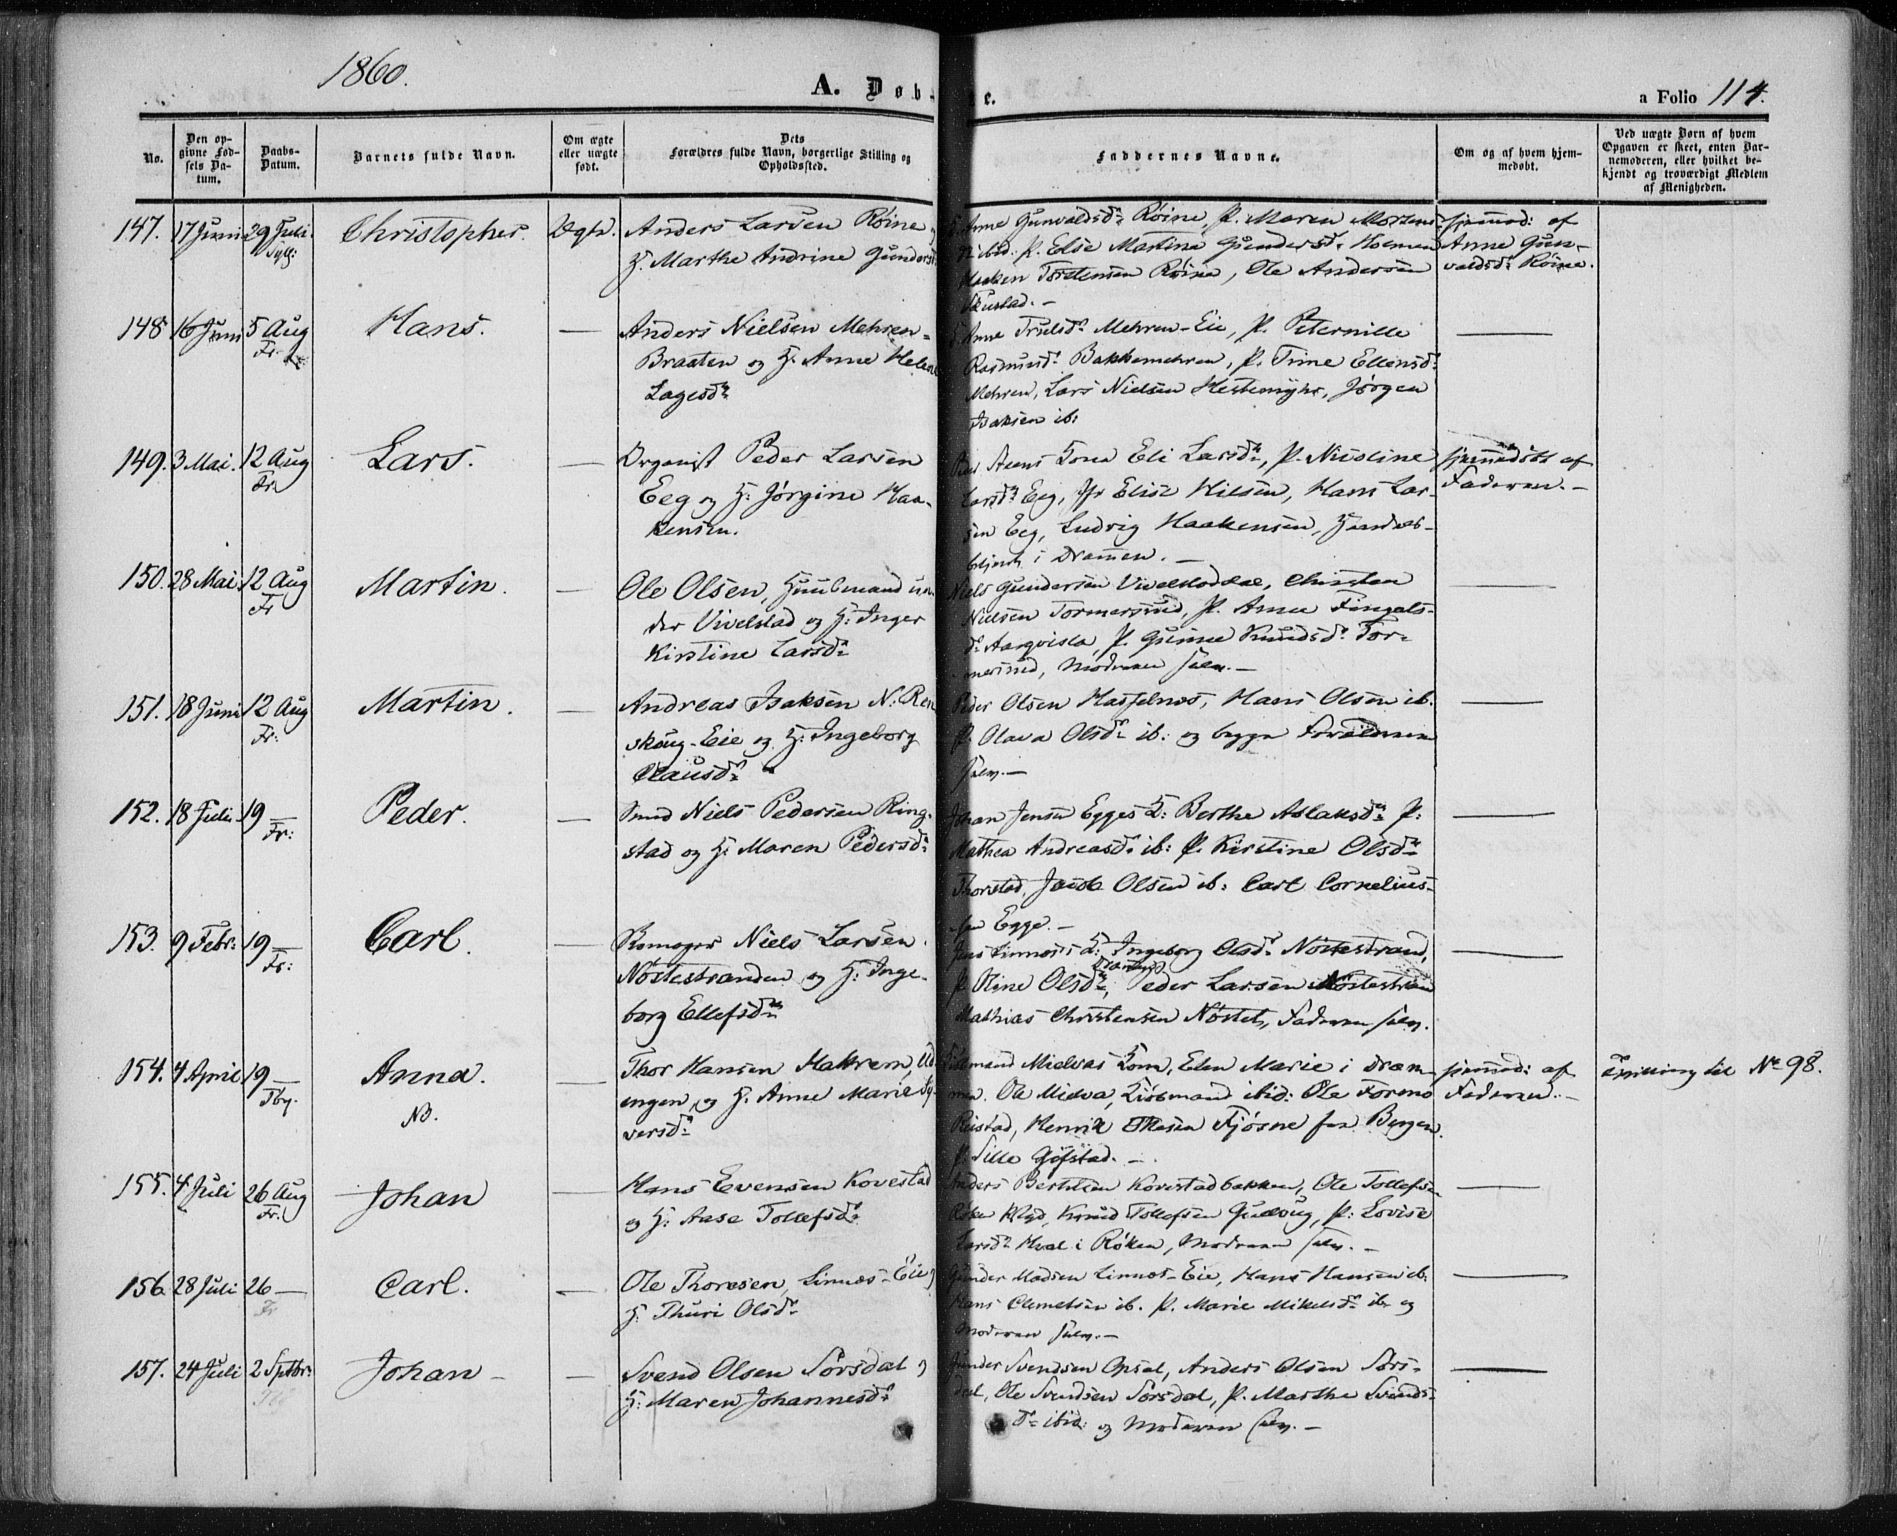 1860.
A. Døb-
te.
a Folio 114.
No.
Den opgivne Fødsels Datum.
Daabs-Datum.
Barnets fulde Navn.
Om ægte eller uægte født.
Dets Forældres fulde Navn, borgerlige Stilling og Opholdssted.
Faddernes Navne.
Om og af hvem hjemmedøbt.
Ved uægte Børn af hvem Opgaven er skeet, enten Barnemoderen, eller hvilket bekjendt og troværdigt Medlem af Menigheden.
147. 17 Juni 29 Juli Syll: Christopher. Ægte.
Anders Larsen Røine
H. Marthe Andrine Gundersd
Anne Gunvaldsdr Røine, P. Maren Mortens-
ibid: P. Else Martine Gundersdr Hoemen
Haaken Torstensen Røine, Ole Andersen
Skustad. –
hjemmed: af
Anne Gun-
valdsdr Røine.
148 16 Juni 5 Aug Fr. Hans. —
Anders Nielsen Mehren-
Braaten og H. Anne Helene
Lagesdr
Anne Trulsdr Mehren-Eie, P. Peternille
Rasmusdr Bakkemehren, P. Trine Ellensdr
Mehren, Lars Nielsen Hestemyhr, Jørgen
Isaksen ib: —
149. 3 Mai. 12 Aug Fr. Lars. —
Organist Peder Larsen
Eeg og H. Jørgine Haa-
kensen.
Kone Eli Larsdr, P. Nicoline
Larsdr Eeg, Jfr Elise Nilsen, Hans Lar-
sen Eeg, Ludvig Haakensen, Handels-
betjent i Dramen. –
hjemmedøbt af
Faderen. –
150. 28 Mai. 12 Aug Fr Martin. —
Ole Olsen, Huusmand un-
der Vivelstad og H: Inger
Kirstine Larsdr
Niels Gundersen Vivelstaddal, Christen
Nielsen Tormersrud, P. Anne Fingals-
dr Aarqvisla, P. Gunne Knudsdr Tor-
mersrud, Moderen selv. – —
151. 18 Juni 12 Aug Fr: Martin. —
Andreas Isaksen N: Ren
skoug-Eie og H: Ingeborg
Clausdr
Peder Olsen Hasselnes, Hans Olsen ib.
P. Olava Olsdr ib: og begge Forældrene
selv. – —
152. 18 Juli 19 — Fr: Peder. —
Smed Niels Pedersen Ring-
stad og H. Maren Pedersdr
Johan Jensen Egges K: Berthe Aslaksdr P:
Mathea Andreasdr ib: P. Kirstine Olsdr
Thorstad, Jacob Olsen ib: Carl Cornelius-
sen Egge. – —
153. 9 Febr: 19 — Fr: Carl. —
Skomager Niels Larsen
Nøstestranden og H: Inge-
borg Ellefsdr
Jens Linnæs's K: Ingeborg Olsdr Nøstestrand,
P. Oline Olsdr, Peder Larsen Nøstestran
Mathias Christensen Nøstet, Faderen selv. —
154. 4 April 19 — Tby. Anna. NB. —
Thor Hansen Hakrem,
engen og H. Anne Marie Sy-
versdr
Mielvas Kone, Elen Marie i Dram-
men. Ole Mielva, Kjøbmand ibid: Ole Formo
Ristad, Henrik Fjøsne fra Bergen
P. Sille Gjøfstad. –
hjemmed: af
Faderen. –
Tvilling til No 98.
155. 4 Juli 26 Aug Fr. Johan —
Hans Evensen Kovestad
og H: Aase Tollefsdr
Anders Bertelsen Kovestadbakken, Ole Tollefsen
Røken Prgd, Knud Tollefsen Gudvug, P: Lovise
Larsdr Hval i Røken, Moderen selv. – —
156. 28 Juli 26 — Fr Carl. —
Ole Thoresen, Linnæs-Eie
H: Thuri Olsdr
Gunder Madsen Linnæs-Eie, Hans Hansen ib:
Hans Clemetsen ib. P. Marie Mikelsdr ib: og
Moderen selv. – —
157. 24 Juli 2 Septbr: Johan —
Svend Olsen Sørsdal
H: Maren Johannesdr
Gunder Svendsen Opsal, Anders Olsen Sørs-
dal, Ole Svendsen Sørsdal, P. Marthe Svends-
dr ibid: og Moderen selv. – —